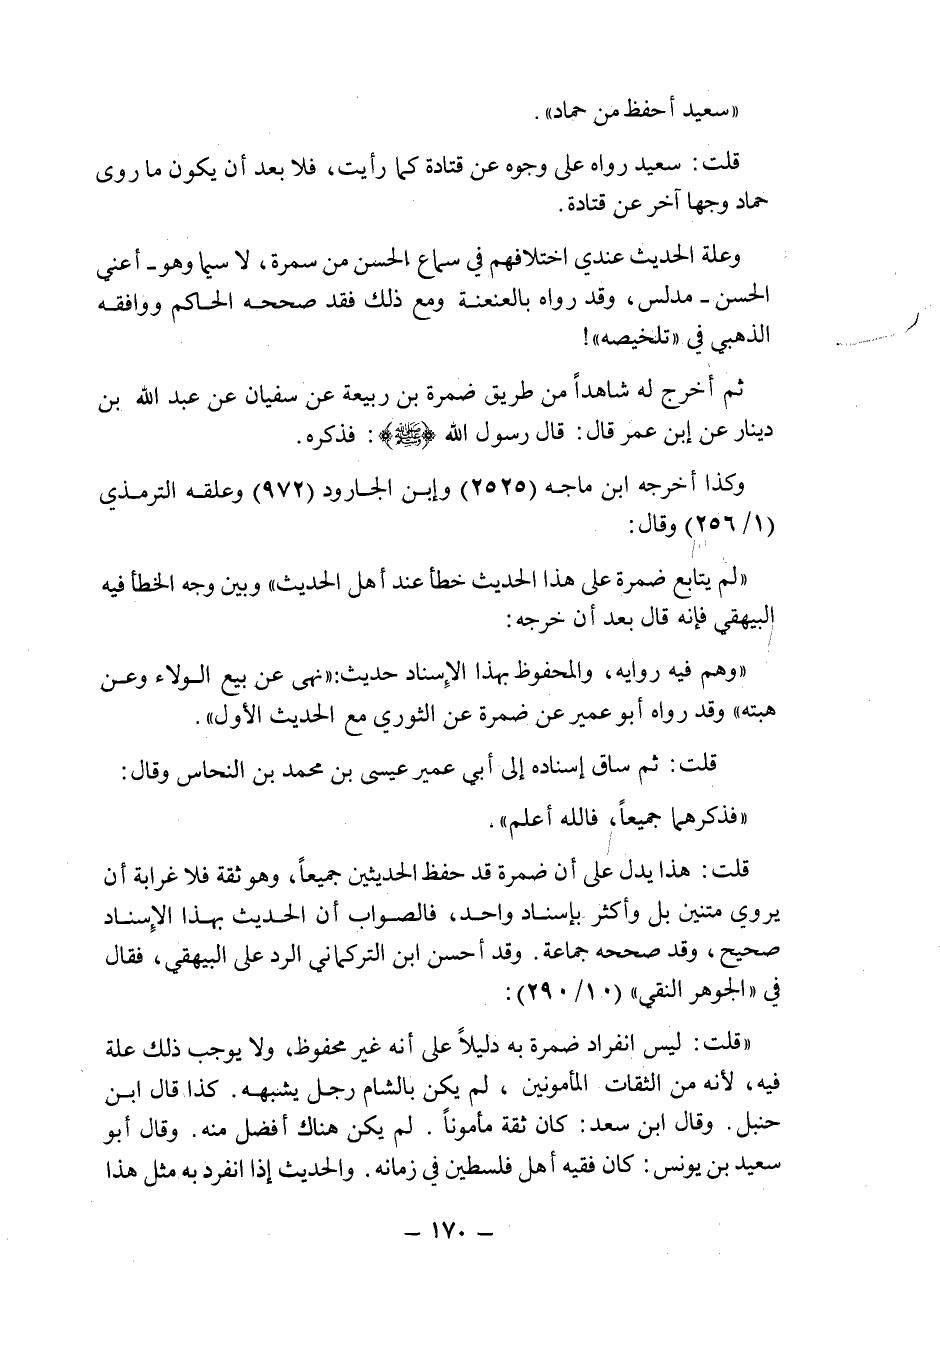 «سعيد أحفظ من حماد» .
قلت : سعيد رواه على وجوه عن قتادة كما رأيت، فلا بعد أن يكون ما روى
حماد وجها آخر عن قتادة .
وعلة الحديث عندي اختلافهم في سماع الحسن من سمرة، لا سيما وهو ـ أعني
الحسن ـ مدلس، وقد رواه بالعنعنة ومع ذلك فقد صححه الحاكم ووافقه
الذهبي في «تلخيصه»!
ثم أخرج له شاهداً من طريق ضمرة بن ربيعة عن سفيان عن عبد الله بن
دينار عن إبن عمر قال : قال رسول الله ﴿ﷺ﴾ : فذكره .
وكذا أخرجه ابن ماجه (٢٥٢٥) وإبن الجارود (٩٧٢) وعلقه الترمذي
(١/ ٢٥٦) وقال :
«لم يتابع ضمرة على هذا الحديث خطأ عند أهل الحديث» وبين وجه الخطأ فيه
البيهقي فإنه قال بعد أن خرجه :
«وهم فيه روايه، والمحفوظ بهذا الإسناد حديث:«نهى عن بيع الولاء وعن
هبته» وقد رواه أبو عمير عن ضمرة عن الثوري مع الحديث الأول» .
قلت : ثم ساق إسناده إلى أبي عمير عيسى بن محمد بن النحاس وقال :
«فذكرهما جميعاً، فالله أعلم» .
قلت : هذا يدل على أن ضمرة قد حفظ الحديثين جميعاً، وهو ثقة فلا غرابة أن
يروي متنين بل وأكثر بإسناد واحد، فالصواب أن الحديث بهذا الإسناد
صحيح، وقد صححه جماعة . وقد أحسن ابن التركماني الرد على البيهقي، فقال
في «الجوهر النقي» (١٠/ ٢٩٠) :
«قلت : ليس انفراد ضمرة به دليلاً على أنه غير محفوظ، ولا يوجب ذلك علة
فيه، لأنه من الثقات المأمونين ، لم يكن بالشام رجل يشبهه . كذا قال ابن
حنبل . وقال ابن سعد : كان ثقة مأموناً . لم يكن هناك أفضل منه . وقال أبو
سعيد بن يونس : كان فقيه أهل فلسطين في زمانه . والحديث إذا انفرد به مثل هذا
ـ ١٧٠ ـ